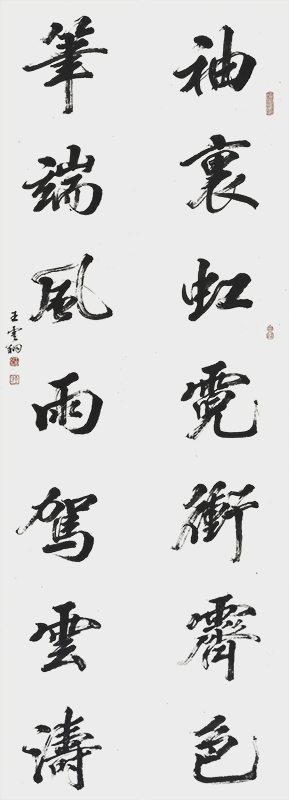 袖裏虹霓衝霽色
筆端風雨駕雲濤
王雲